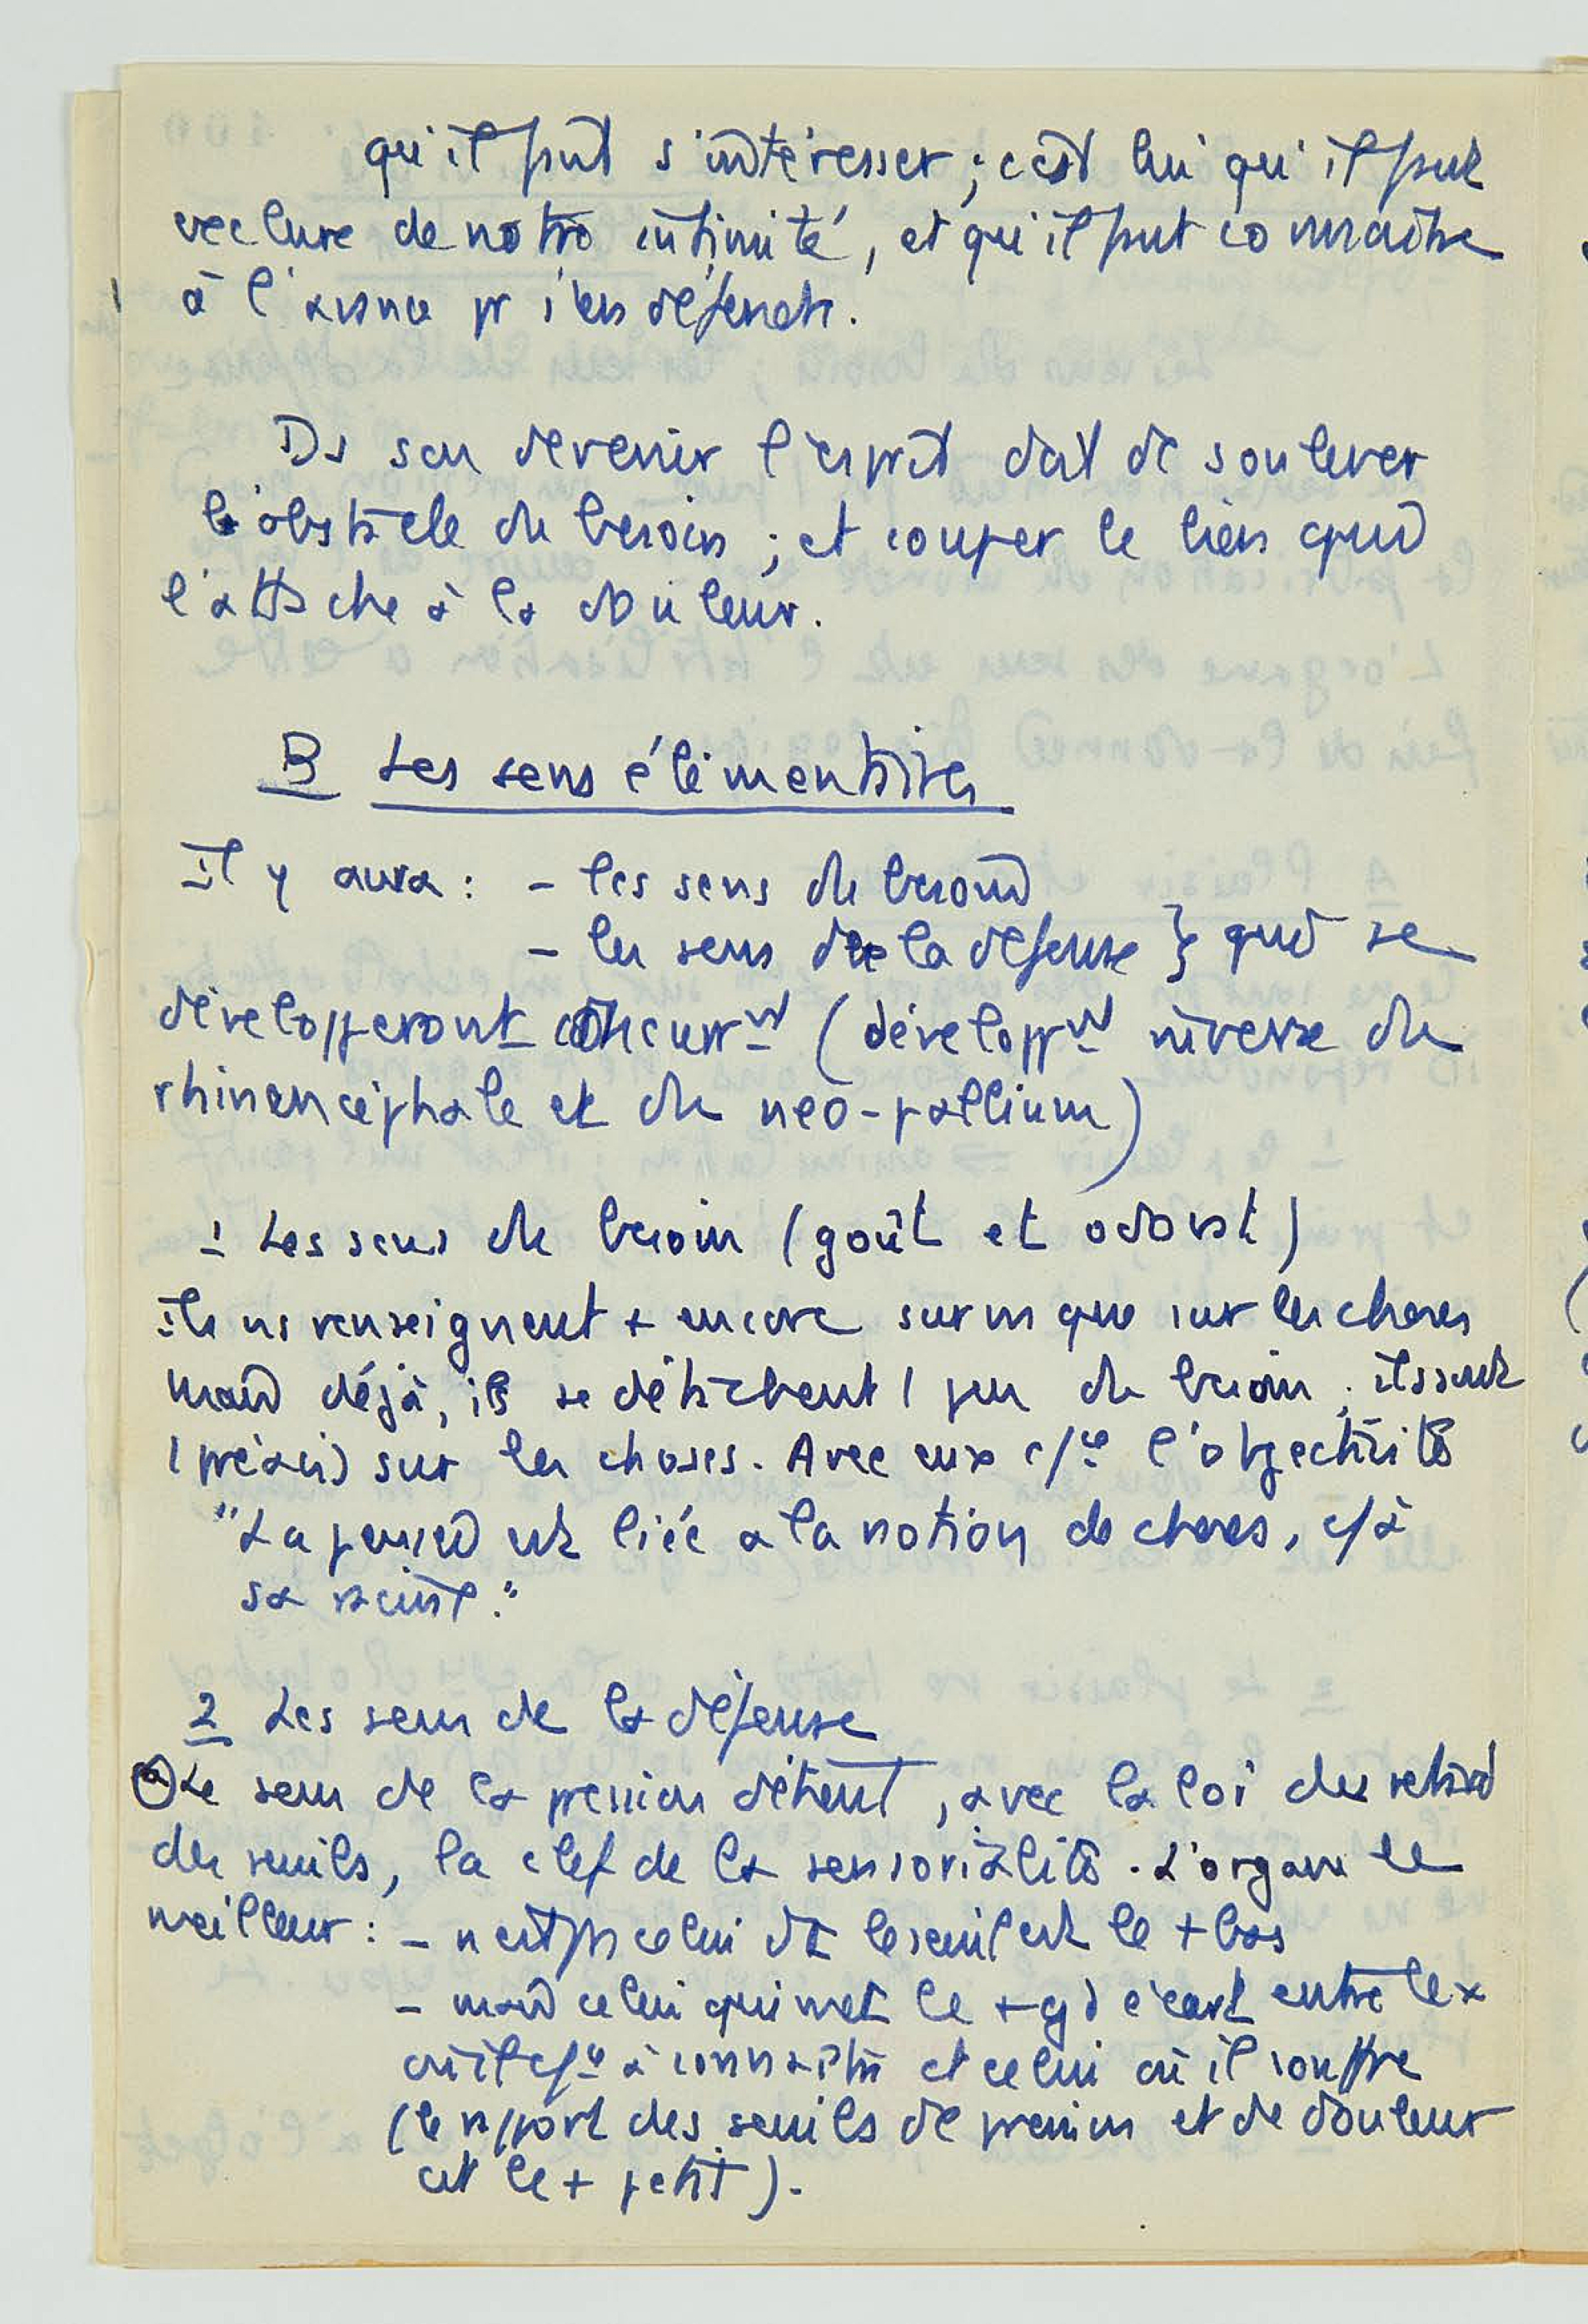 qu'il faut s'intéresser ; c'est lui qu'il faut
exclure de notre intimité, et qu'il faut connaître
à l'avance pr s'en défendre.
Ds son devenir l'esprit doit de soulever
l'obstacle du besoin ; et couper le lien qui
l'attache à la douleur.
B Les sens élémentaires
il y aura : - les sens du besoin
- les sens de la défense } qui se
développeront concurrnt (développnt inverse du
rhinencéphale et du néo-pallium)
1 Les sens du besoin (goût et odorat)
ils ns renseignent + encore sur ns que sur les choses
mais déjà, ils se détachent 1 peu du besoin ; ils sont
1 préavis sur les choses. Avec eux c/ce l'objectivité
"La pensée est liée à la notion de choses, c/à
sa racine."
2 Les sens de la défense
a) Le sens de la pression détient, avec la loi du retard
des seuils, la clef de la sensorialité. L'organe le
meilleur : - n'est pas celui dt le seuil est le + bas
- mais celui qui met le + gd écart entre le x
où il c/ce à connaître et celui où il souffre
(le rapport des seuils de pression et de douleur
est le + petit).